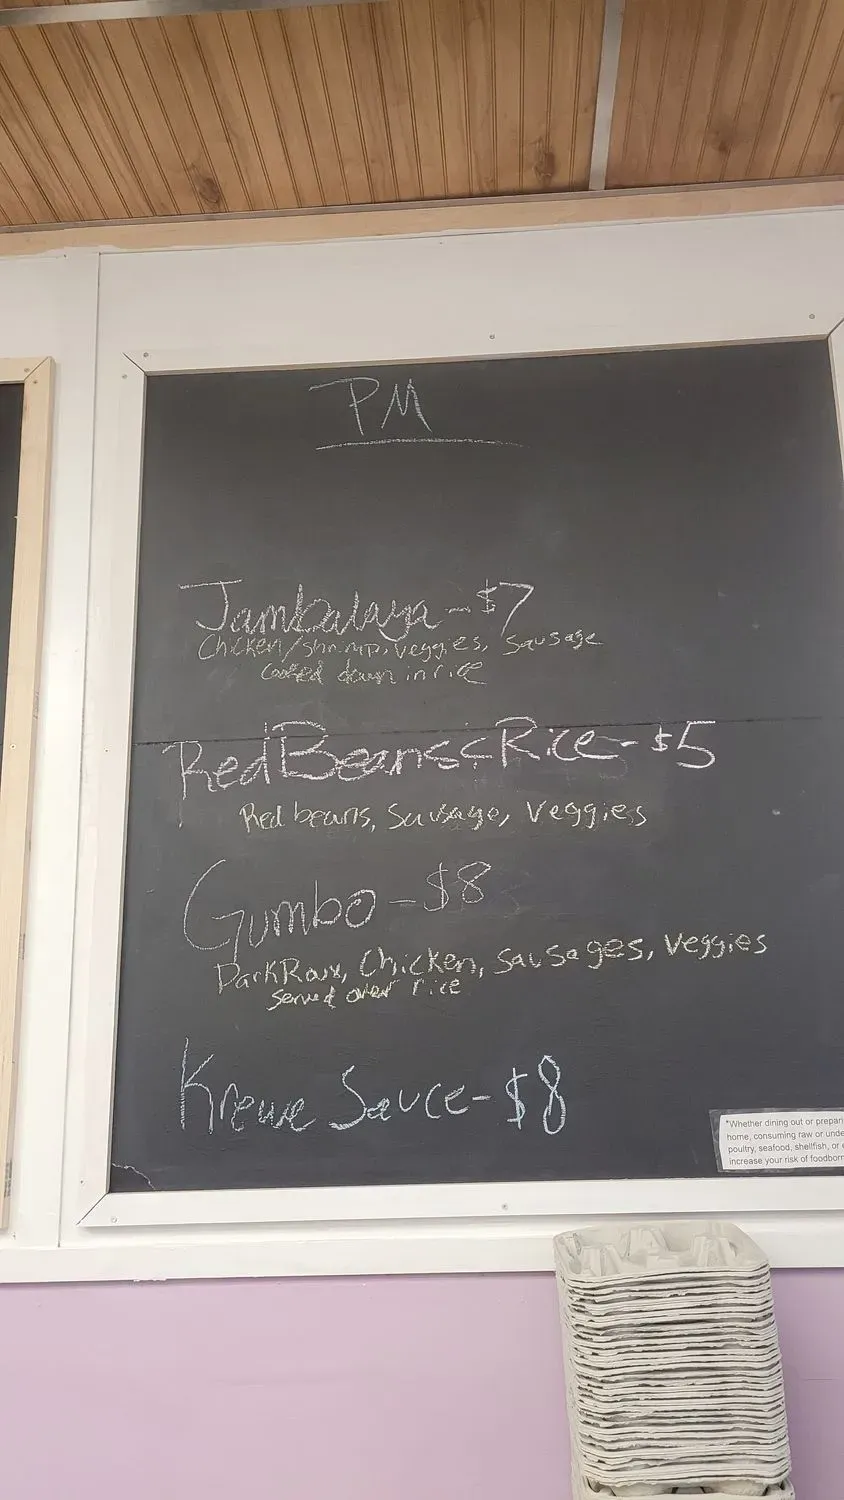 PM
Jambalaya - $7
Chicken/shrimp, veggies, Sausage
cooked down in rice
Red Beans & Rice - $5
Red beans, Sausage, Veggiess
Gumbo - $8
Dark Roux, Chicken, Sausages, Veggies
Served over rice
Krewe Sauce - $8
*Whether dining out or prepari
home, consuming raw or unde
poultry, seafood, shellfish, or e
increase your risk of foodborn